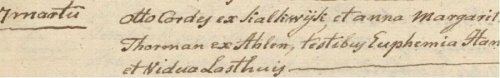 7 martii Otto Cordes ex Kalkwijk, et anna Margarit
Thorman ex Ahlen, testibus Euphemia Han
et Vidua Lasthuis